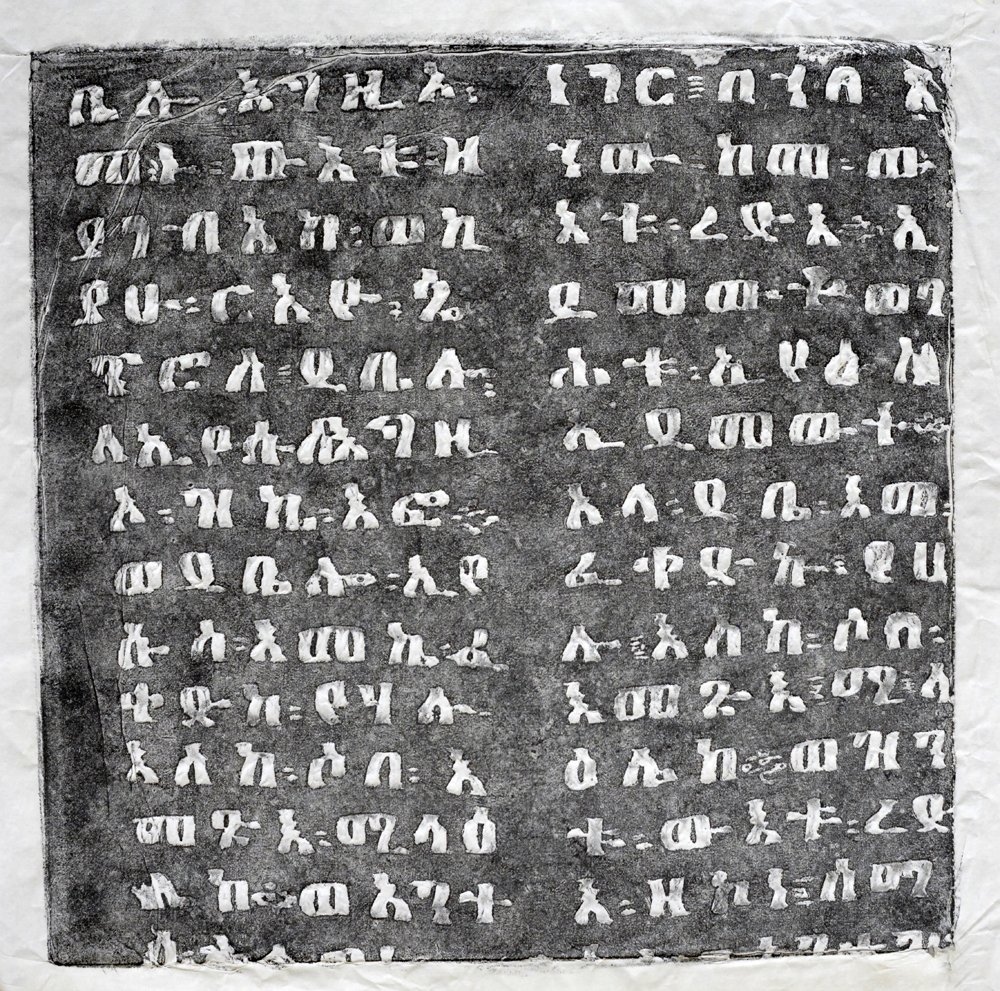 ቤሉ፡እግዚኦ፡
መኑ፡ውእቱ፡ዘ
ያገብአከ፡ወኪ
ያሁ፡ርእዮ፡ጴ
ጥሮስ፡ይቤሎ፡
ለኢየሱስ፡እግዚ
እ፡ዝኬ፡እፎ፡
ወይቤሎ፡ኢየ
ሱስ፡እመኬ፡ፈ
ቀድኩ፡የሃሉ
እስከ፡ሶበ፡እ
መጽእ፡ሚላዕ
ሌከ፡ወአንተ
ነገር፡በኀበ፡አ
ኀው፡ከመ፡ው
እቱ፡ረድእ፡ኢ
ይመውት፡ወባ
ሕቱ፡
ኢይመውት፡
አላ፡ይቤ፡እመ፡
ፈቀድኩ፡የሀ
ሉ፡እስከ፡ሶበ፡
እመጽእ፡ሚላ
ዕሌከ፡ወዝን
ቱ፡ውእቱ፡ረድ
እ፡ዘኮነ፡ሰማ